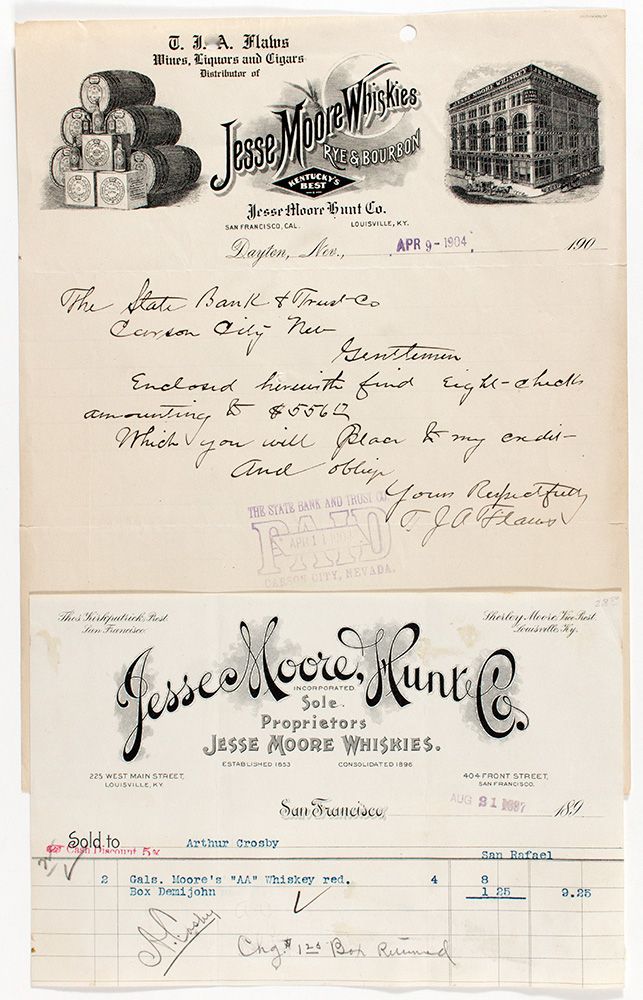 T. J. A. Flaws
Wines, Liquors and Cigars
Distributor of
Jesse Moore Whiskies
RYE & BOURBON
KENTUCKY'S
BEST
JESSE MOORE WHISKEY
Jesse Moore Hunt Co.
SAN FRANCISCO, CAL. LOUISVILLE, KY.
Dayton, Nev., APR 9 - 1904 190
The State Bank & Trust Co
Carson City Nev
Gentlemen
Enclosed herewith find Eight-checks
amounting to
Which you will Place to my credit-
And oblige
Yours Respectfully
T. J A Flaws
THE STATE BANK AND TRUST CO.
PAID
APR 11
CARSON CITY, NEVADA.
Thos. Kirkpatrick, Prest.
San Francisco.
Sherley Moore, Vice Prest.
Louisville, Ky.
Jesse Moore, Hunt Co.
INCORPORATED
Sole
Proprietors
JESSE MOORE WHISKIES.
ESTABLISHED 1853 CONSOLIDATED 1896
225 WEST MAIN STREET,
LOUISVILLE, KY.
404 FRONT STREET,
SAN FRANCISCO.
San Francisco AUG 21 1897 189
Sold to Arthur Crosby
Cash Discount 5% San Rafael
2 Gals. Moore's "AA" Whiskey red. 4 8
Box Demijohn 1 25 9.25
A. Crosby
Chg. $ 1 25 Box Returned